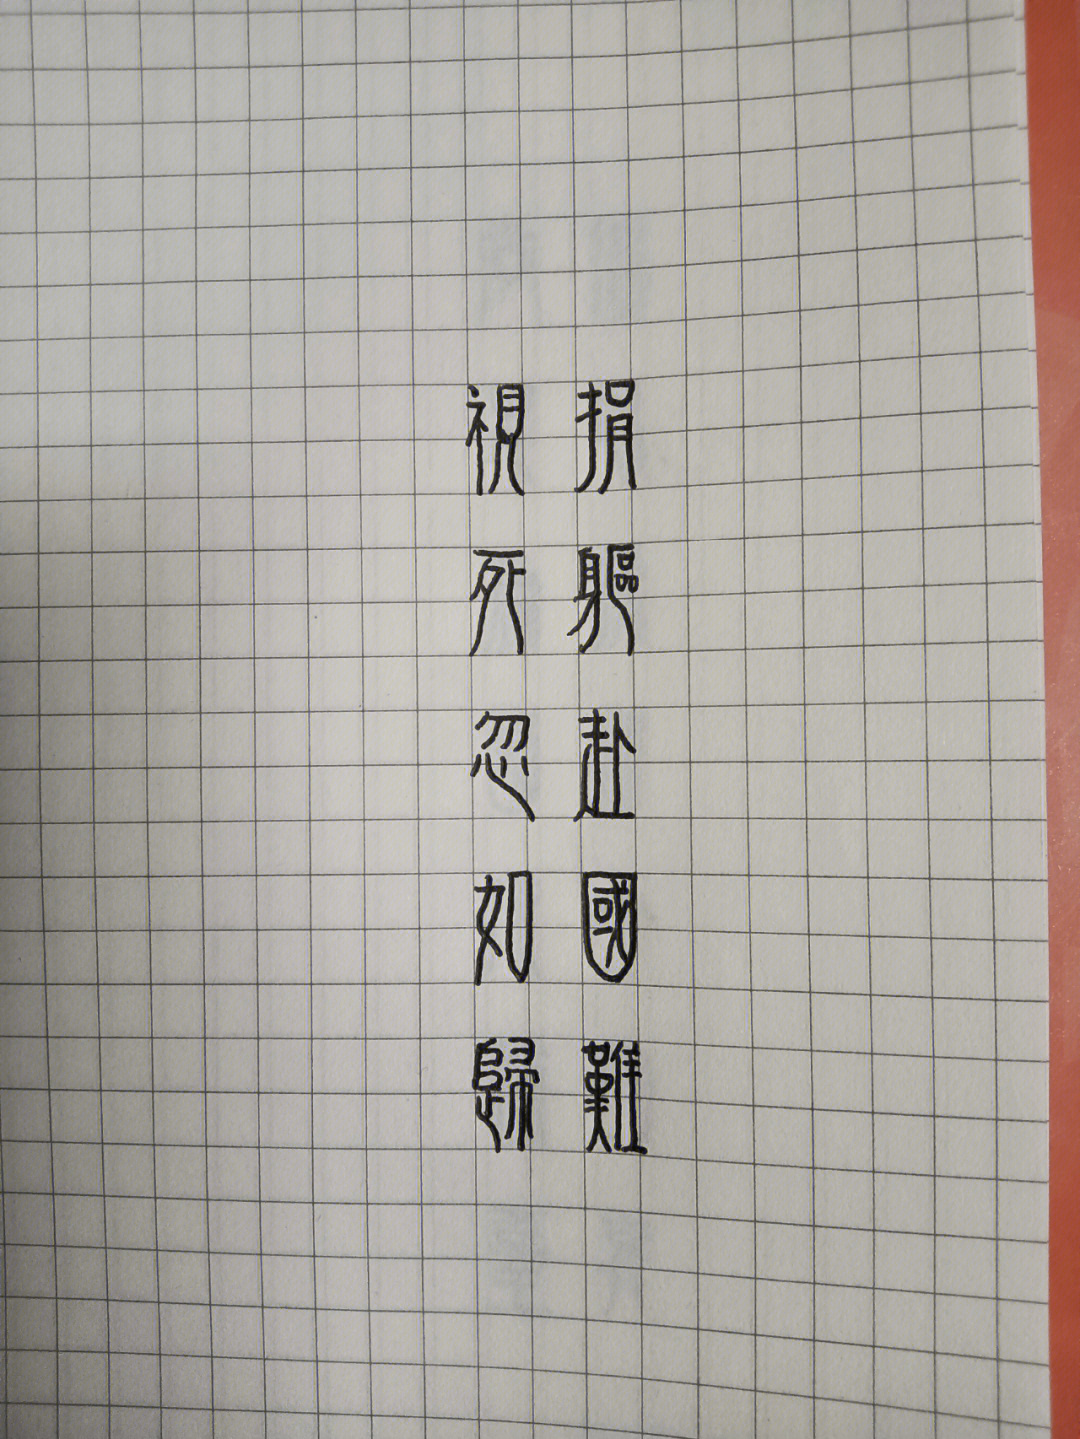 捐軀赴國難
視死忽如歸